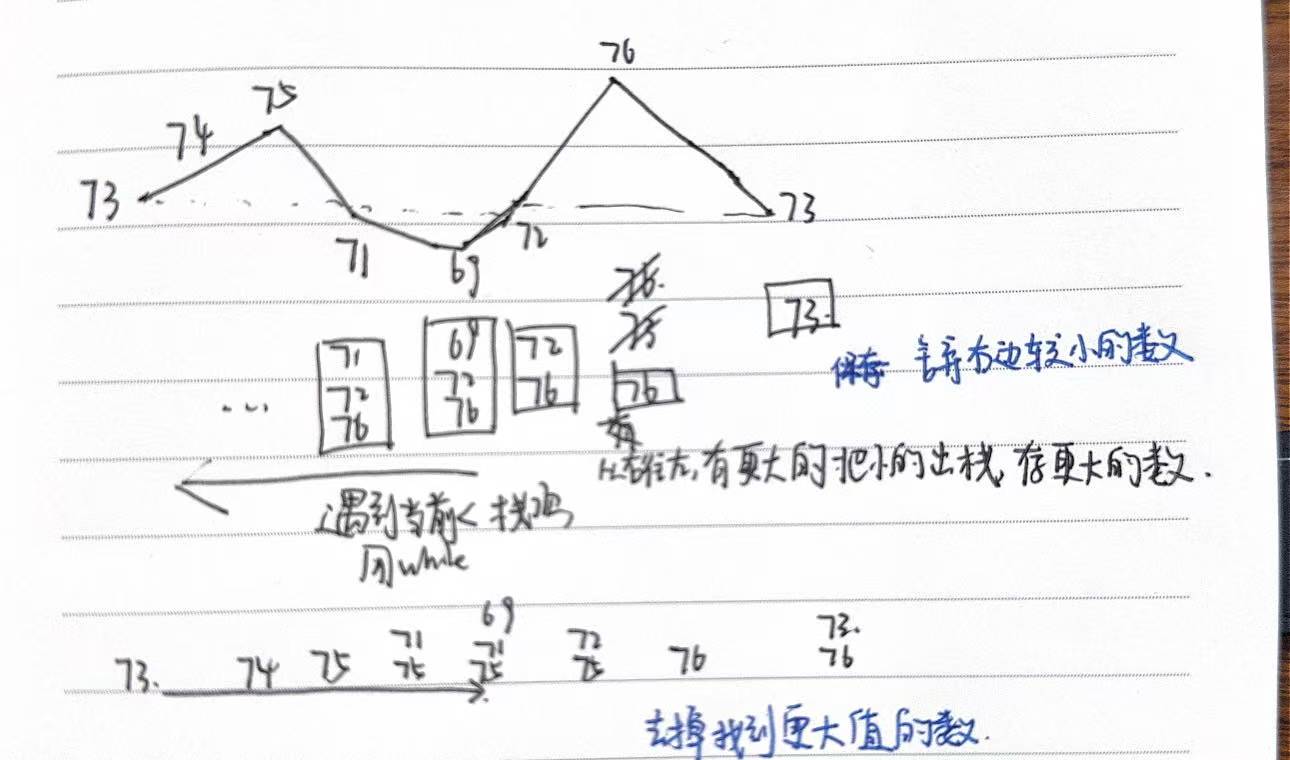 76
75
74
73
73
71
69
72
73.
71
72
76
69
72
76
72
76
76
...
保存 右边较小的数
从右往左,有更大的把小的出栈,存更大的数.
遇到当前<栈顶
用while
73.
74
75
71
75
69
71
75
72
75
76
73.
76
去掉找到更大值的数.